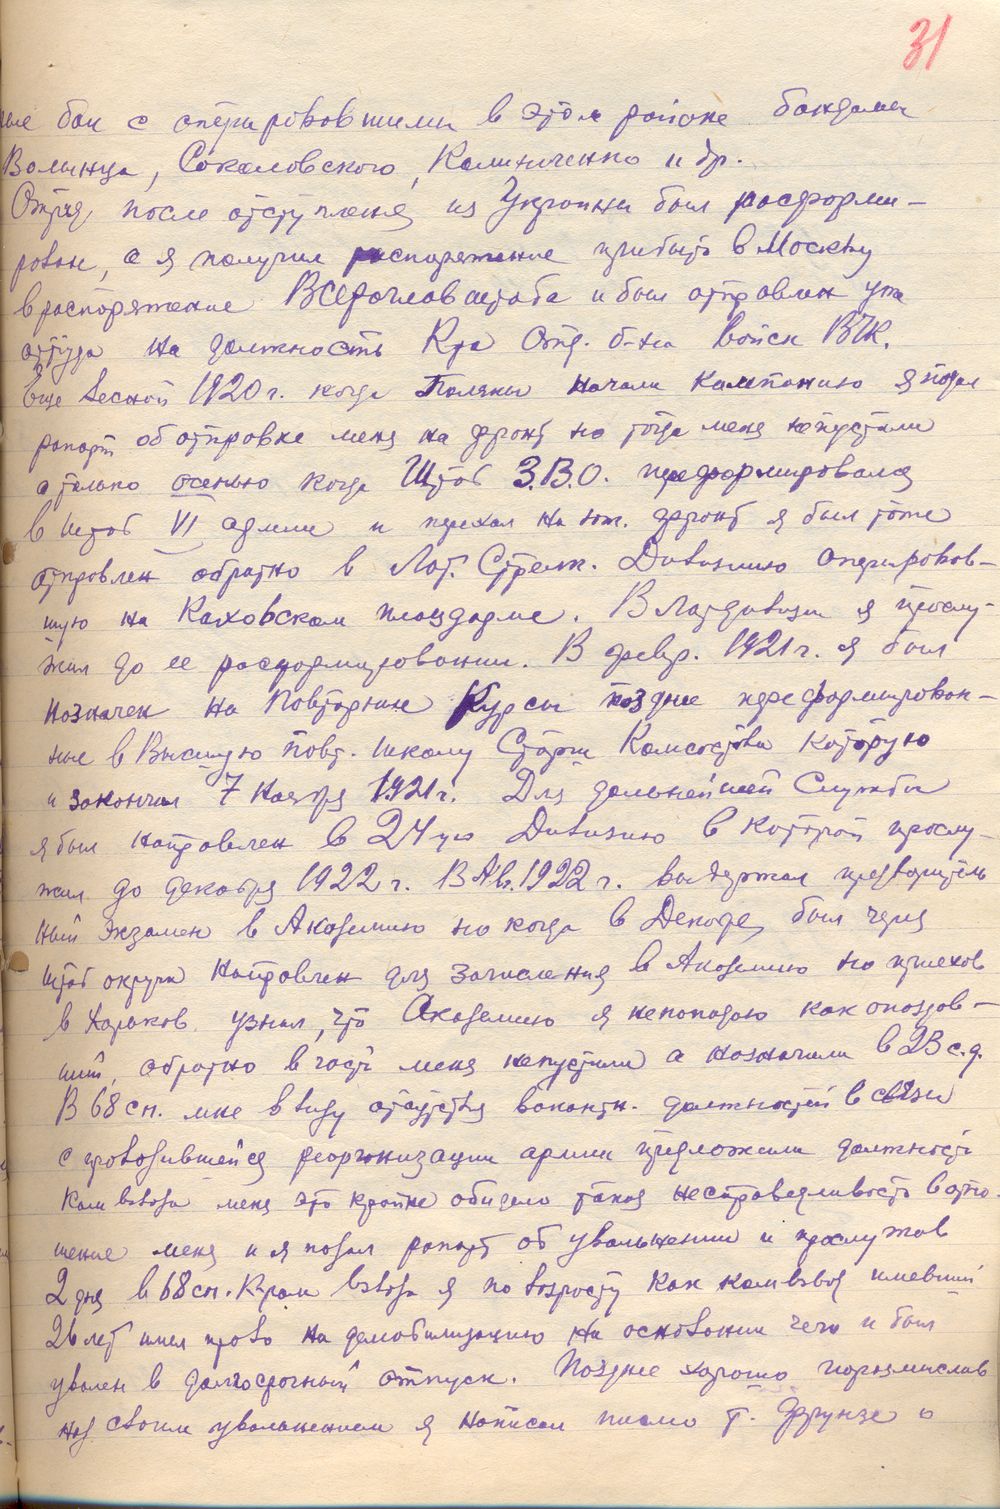 31
ные бои с оперировавшими в этом районе бандами
Волынца, Соколовского, Калиниченко и др.
Отряд, после отступления из Украины был расформи-
рован, а я получил распоряжение прибыть в Москву
в распоряжение Всероглавштаба и был отправлен уже
оттуда на должность К-ра Отд. б-на Войск ВЧК.
Еще весной 1920 г. когда Поляки начали Кампанию я подал
рапорт об отправке меня на фронт но тогда меня непустили
а только осенью когда Штаб З.В.О. переформировался
в штаб VI армии и приехал на юж. фронт я был тоже
отправлен обратно в Лат. Стрелк. Дивизию оперировав-
шую на Каховском плацдарме. В Латдивизии я прослу-
жил до ее расформировании. В февр. 1921 г. я был
назначен на Повторные Курсы позднее переформирован-
ные в Высшую повт. школу Старш Комсостава которую
и закончил 7 Ноября 1921 г. Для дальнейшей Службы
я был направлен в 24-ую Дивизию в которой прослу-
жил до декабря 1922 г. В Ав. 1922 г. выдержал предваритель
ный экзамен в Академию но когда в Декабре, был через
штаб округа направлен для зачисления в Академию но приехав
в Харьков узнал, что Академию я непопадаю как опоздав-
ший, обратно в часть меня непустили а назначили в 23 с.д.
В 68 сп. мне ввиду отсутствия вакантн. должностей в связи
с проводившейся реорганизации армии предложили должность
Ком взвода меня это крайне обидело такая несправедливость в отно-
шение меня и я подал рапорт об увольнении и прослужав
2 дня в 68 сп. К-ром взвода я по возрасту как комвзвода имевший
26 лет имел право на демобилизацию на основании чего и был
уволен в долгосрочный отпуск. Позднее хорошо поразмыслив
над своим увольнением я написал письмо т. Фрунзе о